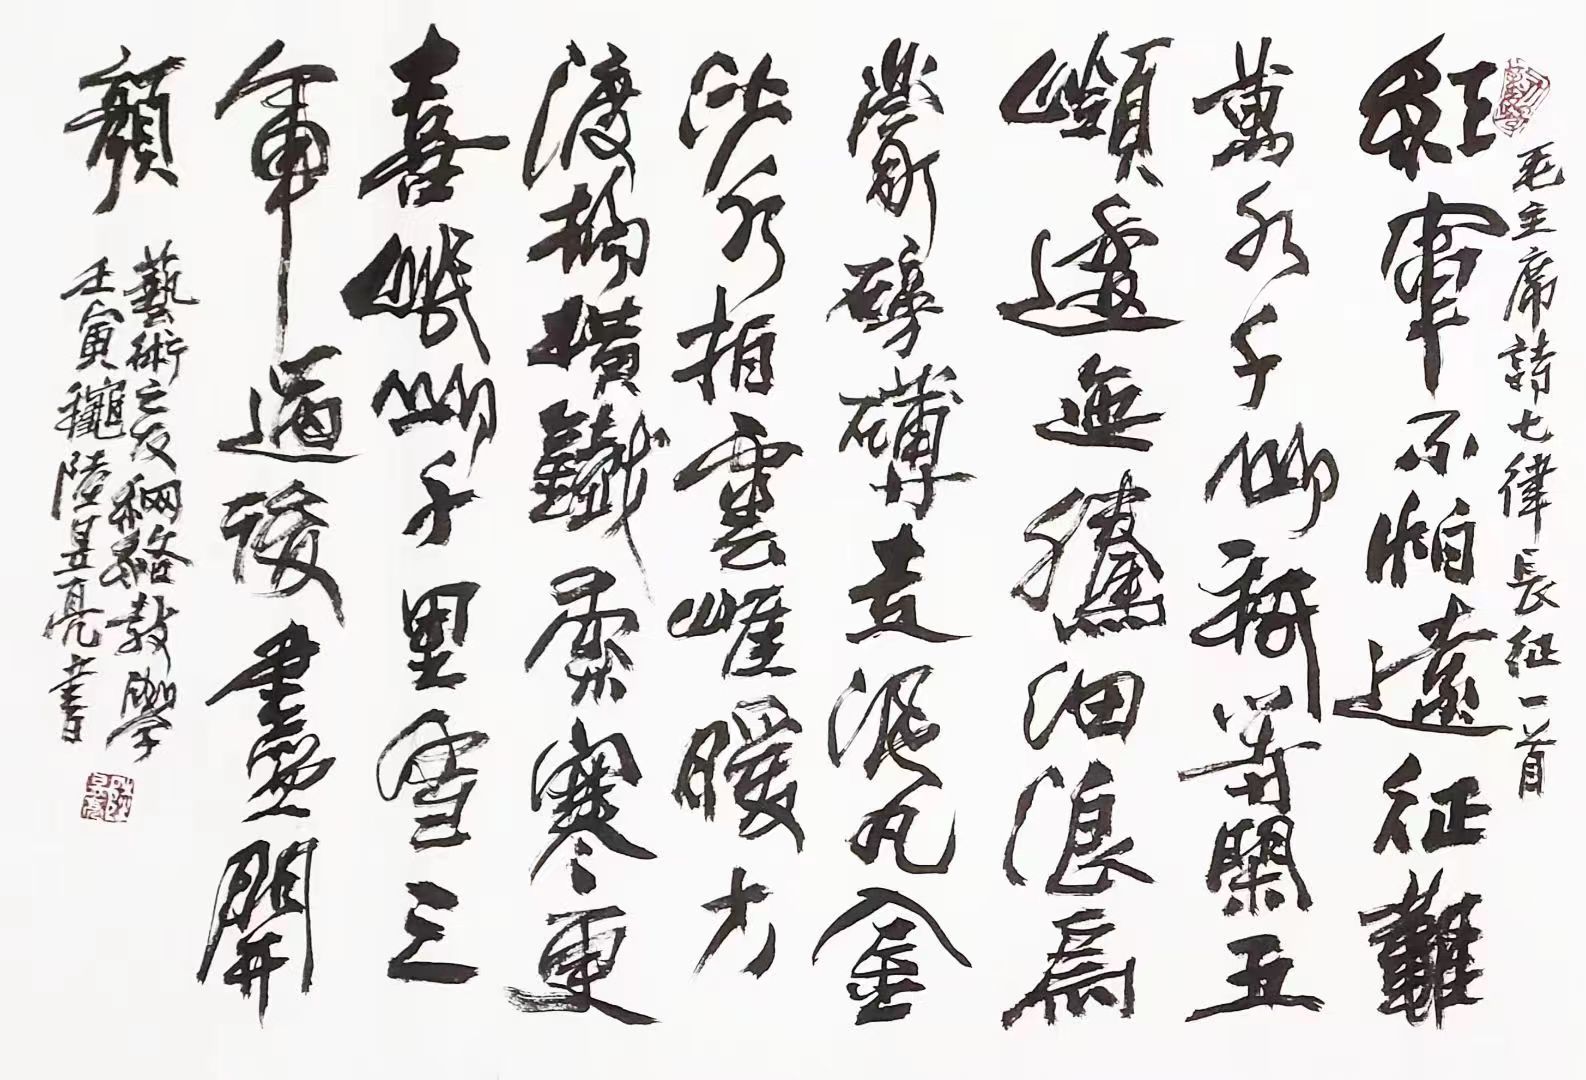 毛主席詩七律長征一首
紅軍不怕遠征難
萬水千山祇等閑五
嶺逶迤騰細浪烏
蒙磅礴走泥丸金
沙水拍雲崖暖大
渡橋橫鐵索寒更
喜岷山千里雪三
軍過後盡開
顏
藝術之友網絡教學
壬寅龝陸昱亮書